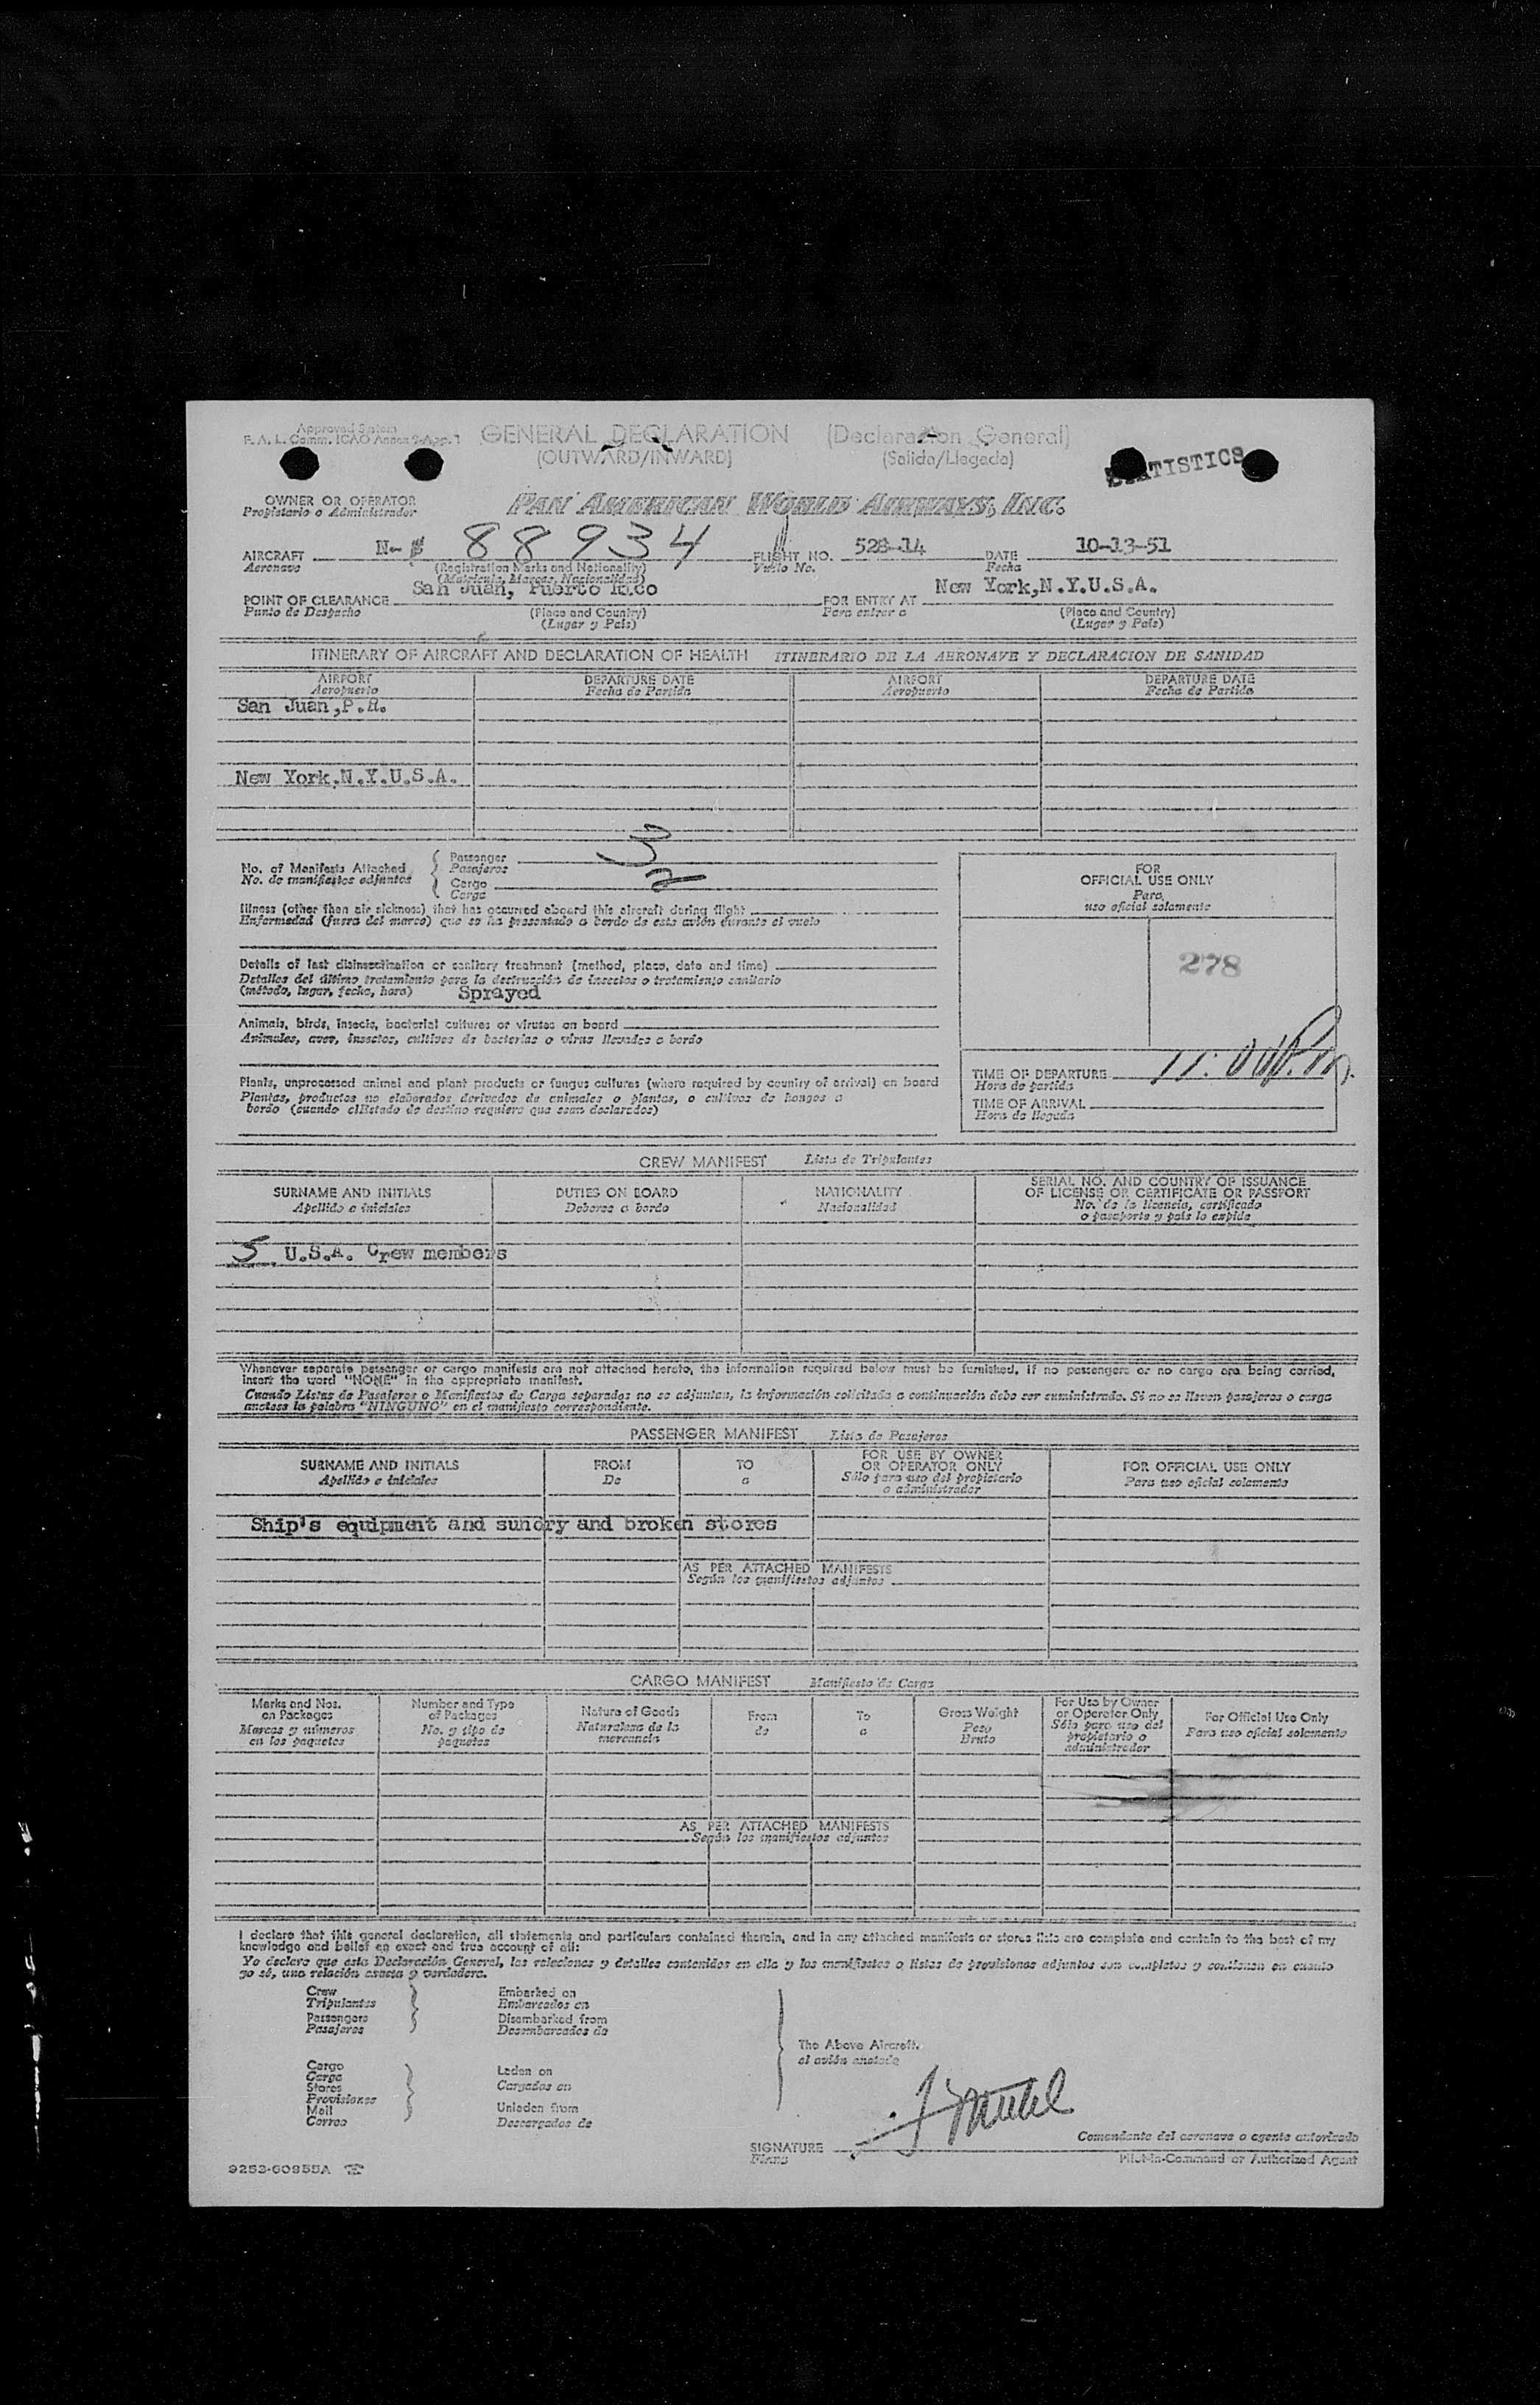 Approved System
F. A. L. Comm. ICAO Annex 9-App. 1
GENERAL DECLARATION (Declaration General)
(OUTWARD/INWARD) (Salida/Llegada)
STATISTICS
OWNER OR OPERATOR
Propietario o Administrador
PAN AMERICAN WORLD AIRWAYS, INC.
AIRCRAFT N- 88934 FLIGHT NO. 528-14 DATE 10-13-51
Aeronave (Registration Marks and Nationality) Vuelo No. Fecha
(Matricula, Marcas, Nacionalidad)
San Juan, Puerto Rico New York,N.Y.U.S.A.
POINT OF CLEARANCE FOR ENTRY AT
Punto de Despacho (Place and Country) Para entrar a (Place and Country)
(Lugar y País) (Lugar y País)
ITINERARY OF AIRCRAFT AND DECLARATION OF HEALTH ITINERARIO DE LA AERONAVE Y DECLARACION DE SANIDAD
AIRPORT DEPARTURE DATE AIRPORT DEPARTURE DATE
Aeropuerto Fecha de Partida Aeropuerto Fecha de Partida
San Juan,P.R.
New York.N.Y.U.S.A.
No. of Manifests Attached
No. de manifiestos adjuntos
Passenger 3
Pasajeros
Cargo 2
Carga
Illness (other than air sickness) that has occurred aboard this aircraft during flight
Enfermedad (fuera del mareo) que se ha presentado a bordo de este avión durante el vuelo
Details of last disinsectization or sanitary treatment (method, place, date and time)
Detalles del último tratamiento para la destrucción de insectos o tratamiento sanitario
(método, lugar, fecha, hora) Sprayed
Animals, birds, insects, bacterial cultures or viruses on board
Animales, aves, insectos, cultivos de bacterias o virus llevados a bordo
Plants, unprocessed animal and plant products or fungus cultures (where required by country of arrival) on board
Plantas, productos no elaborados derivados de animales o plantas, o cultivos de hongos a
bordo (cuando elEstado de destino requiere que sean declarados)
FOR
OFFICIAL USE ONLY
Para
uso oficial solamente
278
TIME OF DEPARTURE 11:00P.m.
Hora de partida
TIME OF ARRIVAL
Hora de llegada
CREW MANIFEST Lista de Tripulantes
SURNAME AND INITIALS DUTIES ON BOARD NATIONALITY SERIAL NO. AND COUNTRY OF ISSUANCE
OF LICENSE OR CERTIFICATE OR PASSPORT
Apellido e iniciales Deberes a bordo Nacionalidad No. de la licencia, certificado
o pasaporte y país lo expide
5 U.S.A. Crew members
Whenever separate passenger or cargo manifests are not attached hereto, the information required below must be furnished. If no passengers or no cargo are being carried,
insert the word "NONE" in the appropriate manifest.
Cuando Listas de Pasajeros o Manifiestos de Carga separados no se adjuntan, la información solicitada a continuación debe ser suministrada. Si no se llevan pasajeros o carga
anotese la palabra "NINGUNO" en el manifiesto correspondiente.
PASSENGER MANIFEST Lista de Pasajeros
SURNAME AND INITIALS FROM TO FOR USE BY OWNER
OR OPERATOR ONLY FOR OFFICIAL USE ONLY
Apellido e iniciales De a Sólo para uso del propietario
o administrador Para uso oficial solamente
Ship's equipment and sundry and broken stores
AS PER ATTACHED MANIFESTS
Según los manifiestos adjuntos
CARGO MANIFEST Manifiesto de Carga
Marks and Nos.
on Packages
Marcas y números
en los paquetes
Number and Type
of Packages
No. y tipo de
paquetes
Nature of Goods
Naturaleza de la
mercancia
From
de
To
a
Gross Weight
Peso
Bruto
For Use by Owner
or Operator Only
Sólo para uso del
propietario o
administrador
For Official Use Only
Para uso oficial solamente
AS PER ATTACHED MANIFESTS
Según los manifiestos adjuntos
I declare that this general declaration, all statements and particulars contained therein, and in any attached manifests or stores lists are complete and contain to the best of my
knowledge and belief an exact and true account of all:
Yo declaro que esta Declaración General, las relaciones y detalles contenidos en ella y los manifiestos o listas de provisiones adjuntos son completos y contienen en cuanto
yo sé, una relación exacta y verdadera.
Crew
Tripulantes
Passengers
Pasajeros
Embarked on
Embarcados en
Disembarked from
Desembarcados de
Cargo
Carga
Stores
Provisiones
Mail
Correo
Laden on
Cargados en
Unladen from
Descargados de
The Above Aircraft.
el avión anotado
Comandante del aeronave o agente autorizado
SIGNATURE
Firma
Pilot-in-Command or Authorized Agent
9253-60955A